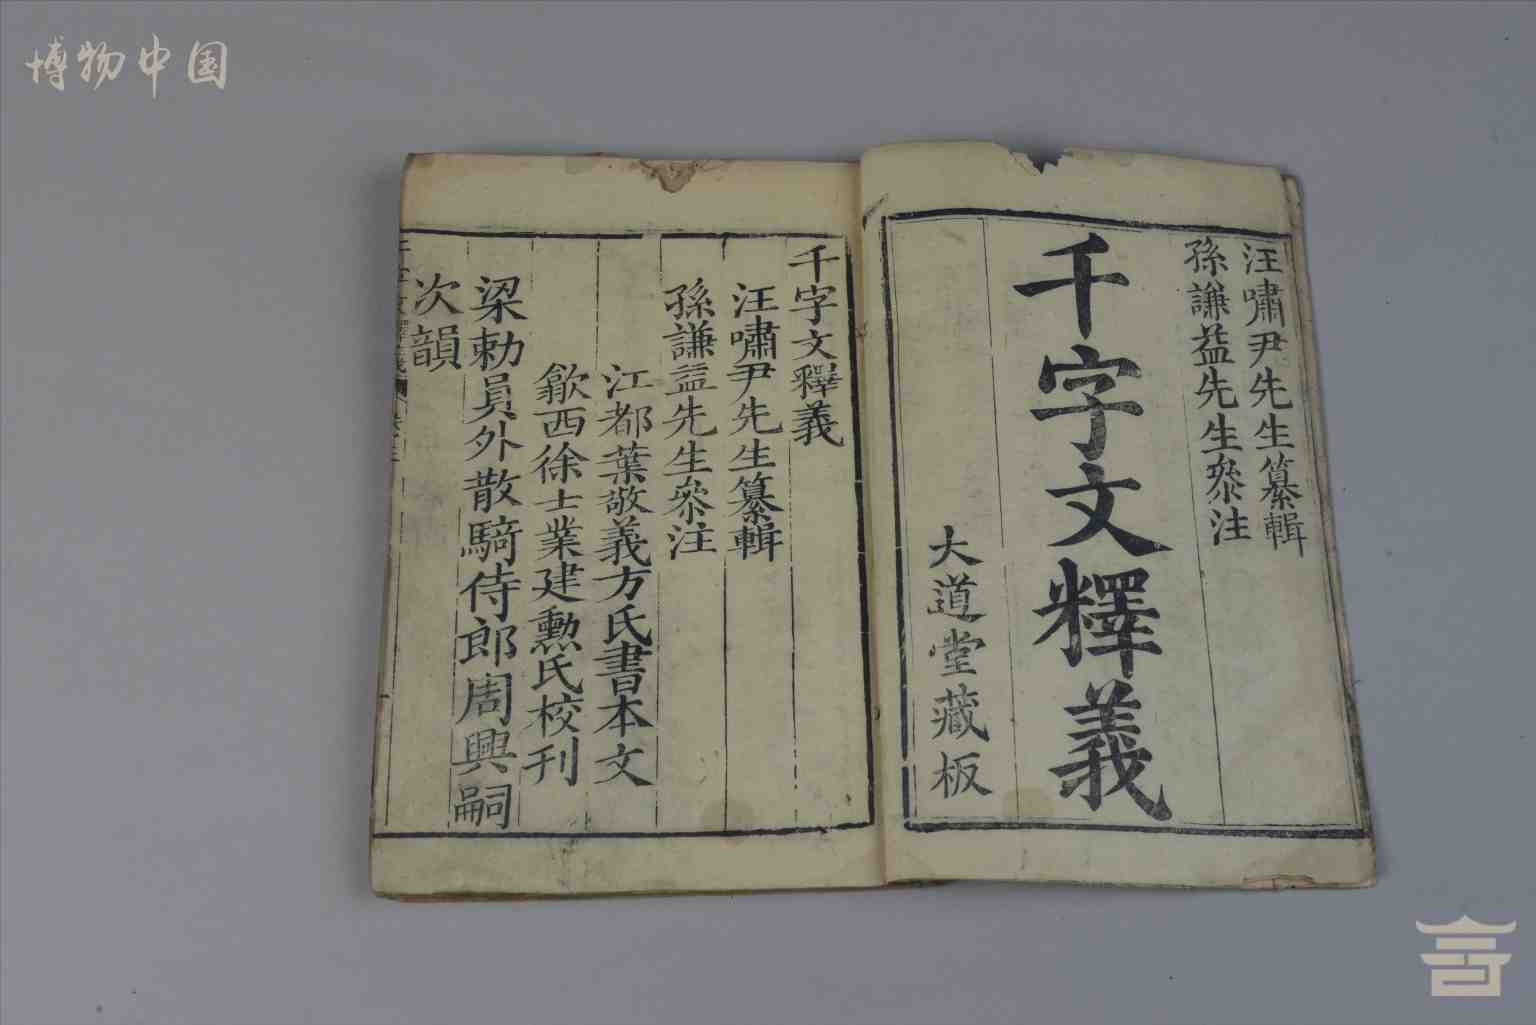 博物中国
汪嘯尹先生纂輯
孫謙益先生叅注
千字文釋義
大道堂藏板
千字文釋義
汪嘯尹先生纂輯
孫謙益先生叅注
江都葉敬義方氏書本文
歙西徐士業建勳氏校刊
梁勅員外散騎侍郎周興嗣
次韻